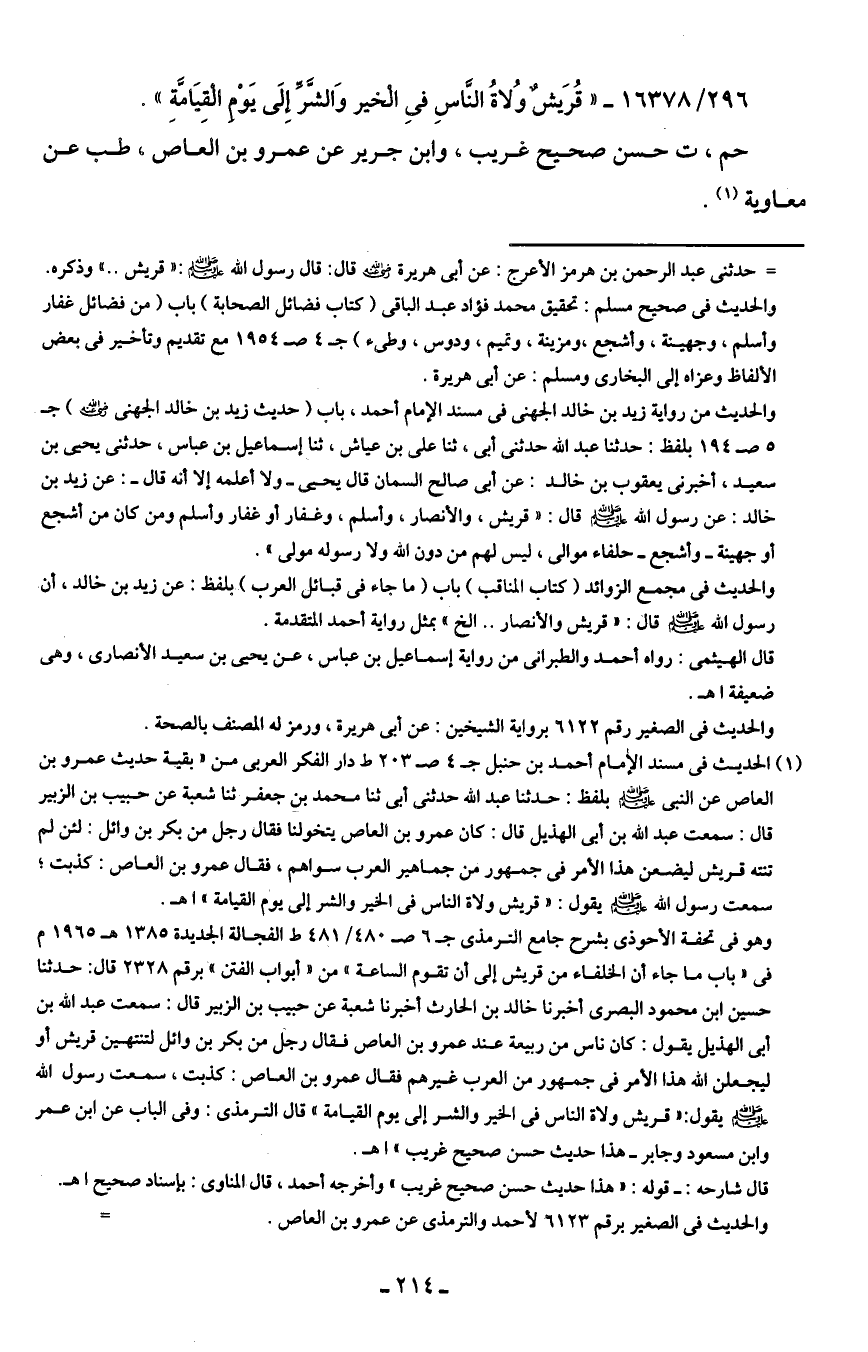 ٢٩٦/١٦٣٧٨ ـ « قُرَيْشٌ وُلاةُ النَّاسِ فِي الْخير وَالشَّرِّ إِلَى يَوْمِ الْقِيَامَةِ » .
حم ، ت حسن صحيح غريب ، وابن جرير عن عمرو بن العاص ، طب عن
معاوية (١) .
= حدثنى عبد الرحمن بن هرمز الأعرج : عن أبى هريرة رضي الله عنه قال: قال رسول الله ﷺ :« قريش ..» وذكره.
والحديث فى صحيح مسلم : تحقيق محمد فؤاد عبد الباقى ( كتاب فضائل الصحابة ) باب ( من فضائل غفار
وأسلم ، وجهينة ، وأشجع ،ومزينة ، وتميم ، ودوس ، وطىء ) جـ ٤ صـ ١٩٥٤ مع تقديم وتأخير فى بعض
الألفاظ وعزاه إلى البخارى ومسلم : عن أبى هريرة .
والحديث من رواية زيد بن خالد الجهنى فى مسند الإمام أحمد ، باب ( حديث زيد بن خالد الجهنى رضي الله عنه ) جـ
٥ صـ ١٩٤ بلفظ : حدثنا عبد الله حدثنى أبى ، ثنا على بن عياش ، ثنا إسماعيل بن عباس ، حدثنى يحيى بن
سعيد ، أخبرنى يعقوب بن خالد : عن أبى صالح السمان قال يحيى ـ ولا أعلمه إلا أنه قال ـ : عن زيد بن
خالد : عن رسول الله ﷺ قال : « قريش ، والأنصار ، وأسلم ، وغفار أو غفار وأسلم ومن كان من أشجع
أو جهينة ـ وأشجع ـ حلفاء موالى ، ليس لهم من دون الله ولا رسوله مولى » .
والحديث فى مجمع الزوائد ( كتاب المناقب ) باب ( ما جاء فى قبائل العرب ) بلفظ : عن زيد بن خالد ، أن
رسول الله ﷺ قال : « قريش والأنصار .. الخ » بمثل رواية أحمد المتقدمة .
قال الهيثمى : رواه أحمد والطبرانى من رواية إسماعيل بن عباس ، عن يحيى بن سعيد الأنصارى ، وهى
ضعيفة ا هـ .
والحديث فى الصغير رقم ٦١٢٢ برواية الشيخين : عن أبى هريرة ، ورمز له المصنف بالصحة .
(١) الحديث فى مسند الإمام أحمد بن حنبل جـ ٤ صـ ٢٠٣ ط دار الفكر العربى من « بقية حديث عمرو بن
العاص عن النبى ﷺ بلفظ : حدثنا عبد الله حدثنى أبى ثنا محمد بن جعفر ثنا شعبة عن حبيب بن الزبير
قال : سمعت عبد الله بن أبى الهذيل قال : كان عمرو بن العاص يتخولنا فقال رجل من بكر بن وائل : لئن لم
تنته قريش ليضعن هذا الأمر فى جمهور من جماهير العرب سواهم ، فقال عمرو بن العاص : كذبت ؛
سمعت رسول الله ﷺ يقول : « قريش ولاة الناس فى الخير والشر إلى يوم القيامة » ا هـ .
وهو فى تحفة الأحوذى بشرح جامع الترمذى جـ ٦ صـ ٤٨٠/ ٤٨١ ط الفجالة الجديدة ١٣٨٥ هـ ١٩٦٥ م
فى « باب ما جاء أن الخلفاء من قريش إلى أن تقوم الساعة » من « أبواب الفتن » برقم ٢٣٢٨ قال: حدثنا
حسين ابن محمود البصرى أخبرنا خالد بن الحارث أخبرنا شعبة عن حبيب بن الزبير قال : سمعت عبد الله بن
أبى الهذيل يقول : كان ناس من ربيعة عند عمرو بن العاص فقال رجل من بكر بن وائل لتنتهين قريش أو
ليجعلن الله هذا الأمر فى جمهور من العرب غيرهم فقال عمرو بن العاص : كذبت ، سمعت رسول الله
ﷺ يقول:« قريش ولاة الناس فى الخير والشر إلى يوم القيامة » قال الترمذى : وفى الباب عن ابن عمر
وابن مسعود وجابر ـ هذا حديث حسن صحيح غريب » ا هـ .
قال شارحه : ـ قوله : « هذا حديث حسن صحيح غريب » وأخرجه أحمد ، قال المناوى : بإسناد صحيح ا هـ.
والحديث فى الصغير برقم ٦١٢٣ لأحمد والترمذى عن عمرو بن العاص . =
ـ ٢١٤ ـ